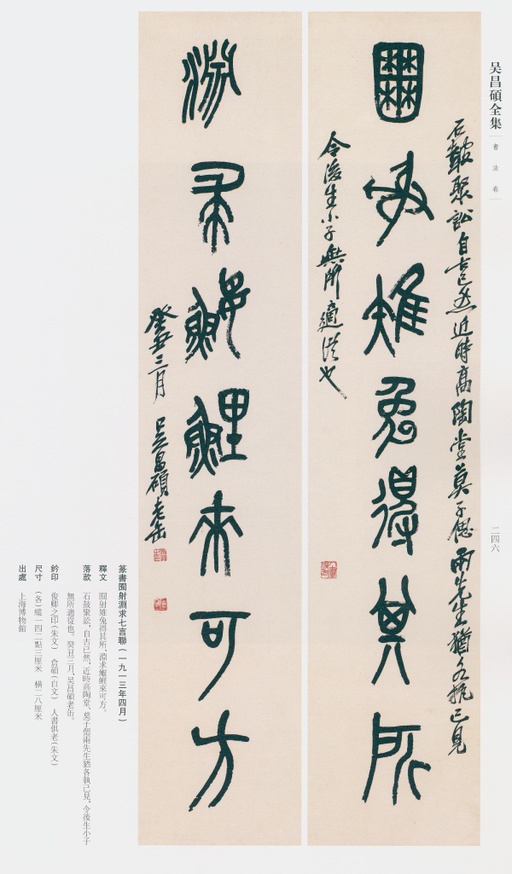 吴昌碩全集
書法卷
二四六
囿射雉兔得其所
石鼓聚訟自古已然近時高陶堂莫子偲兩先生猶各執己見
令後生小子無所適從也
淵求鰋鯉來可方
癸丑三月
吳昌碩老缶
篆書囿射淵求七言聯（一九一三年四月）
釋文 囿射雉兔得其所，淵求鰋鯉來可方。
落款 石鼓聚訟，自古已然，近時高陶堂、莫子偲兩先生猶各執己見，令後生小子
無所適從也。癸丑三月，吳昌碩老缶。
鈐印 俊卿之印（朱文） 倉碩（白文） 人書俱老（朱文）
尺寸 （各）縱一四二點三厘米 橫二八厘米
出處 上海博物館